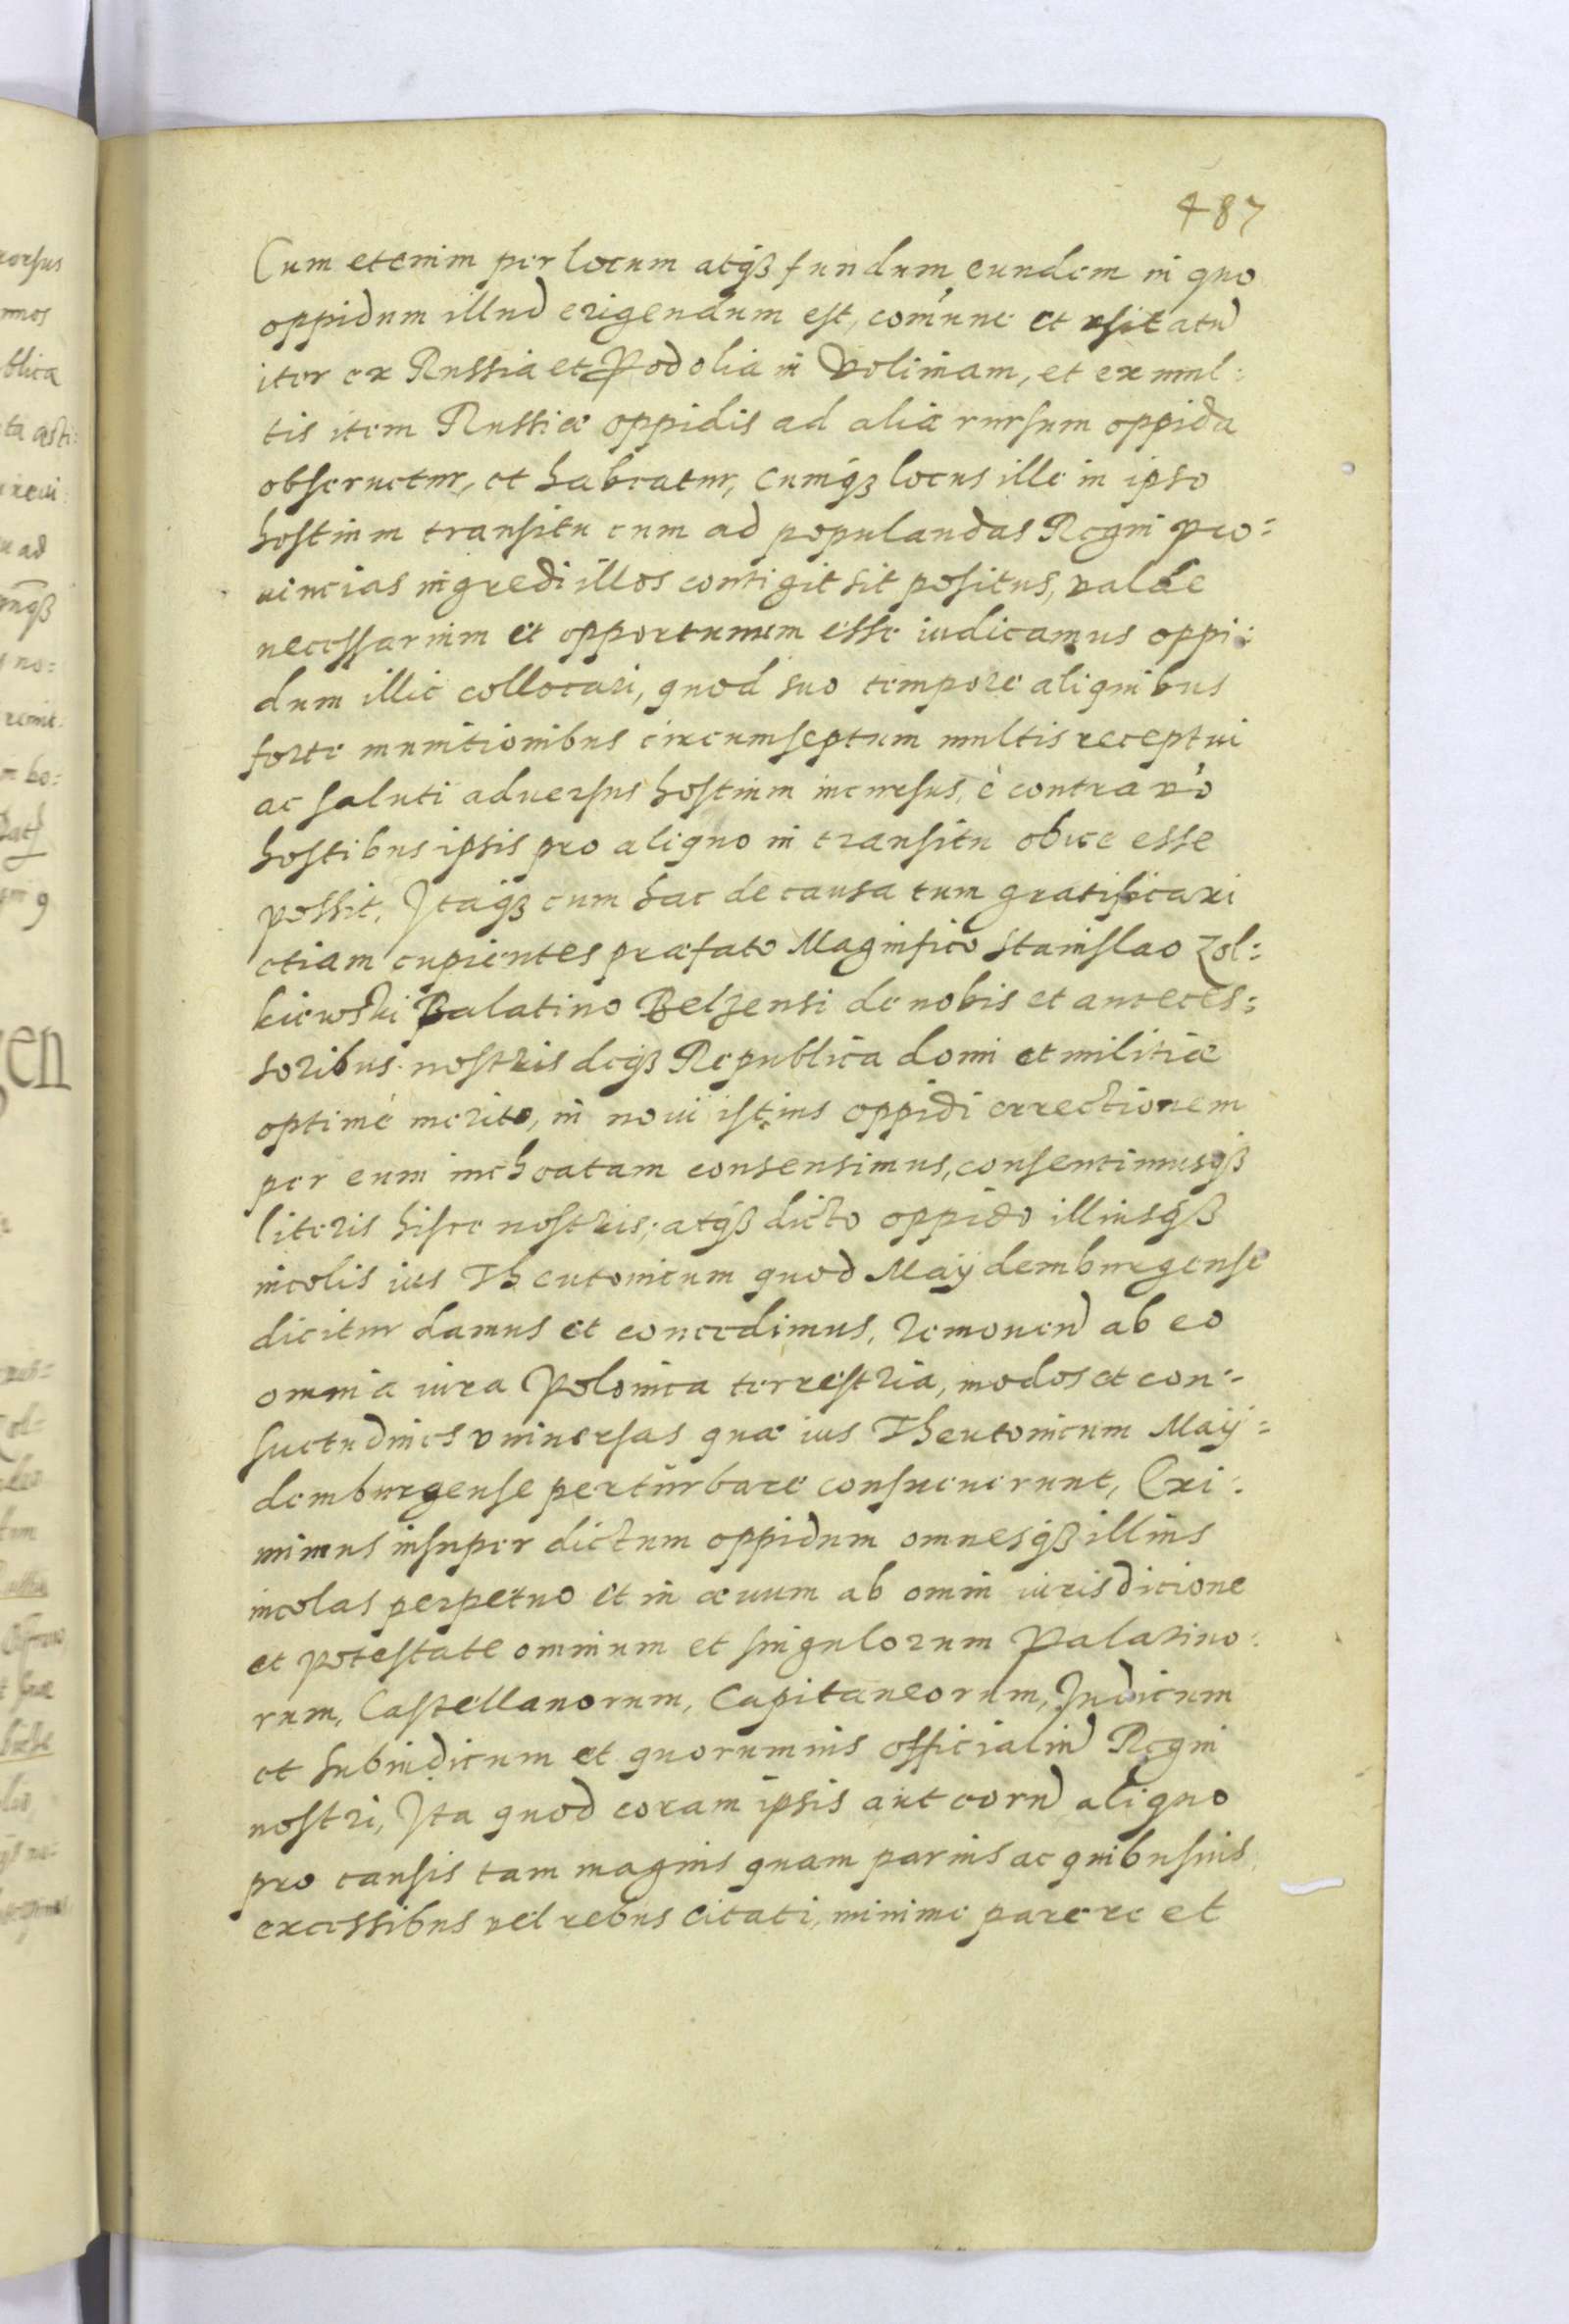 487
Cum etenim per locum atq₃ fundum eundem in quo
oppidum illud erigendum est, com̃une et vsitatũ
iter ex Russia et Podolia in Voliniam, et ex mul:
tis item Russiæ oppidis ad alia rursum oppida
obseruetur, et habeatur, cumq₃ locus ille in ipso
hostium transitu cum ad populandas Regni pro:
uincias ingredi illos contigit sit positus, valde
necessarium et opportunum esse iudicamus oppi:
dum illic collocari, quod suo tempore aliquibus
forte munitionibus circumseptum multis receptui
ac saluti aduersus hostium incursus, è contra v̓o
hostibus ipsis pro aliquo in transitu obice esse
possit. Itaq₃ cum hac de causa tum gratificari
etiam cupientes præfato Magnifico Stanislao Zol:
kiewski Palatino Belzensi de nobis et anteces:
soribus nostris deq₃ Republica domi et militiæ
optimè merito, in noui istius oppidi errectionem
per eum inchoatam consensimus, consentimusq₃
literis hisce nostris, atq₃ dicto oppido illiusq₃
incolis ius Theutonicum quod Maÿdemburgense
dicitur damus et concedimus, remouen̄ ab eo
omnia iura Polonica terrestria, modos et con:
suetudines vniuersas quæ ius Theutonicum Maÿ:
demburgense perturbare consueuerunt, Exi:
mimus insuper dictum oppidum omnesq₃ illius
incolas perpetuo et in æuum ab omni iurisdicione
et potestate omnium et singulorum Palatino:
rum, Castellanorum, Capitaneorum, Iudicum
et subiudicum et quorumuis officialiũ Regni
nostri, Ita quod coram ipsis aut eorũ aliquo
pro causis tam magnis quam paruis ac quibusuis
excessibus vel rebus citati, minime parere et